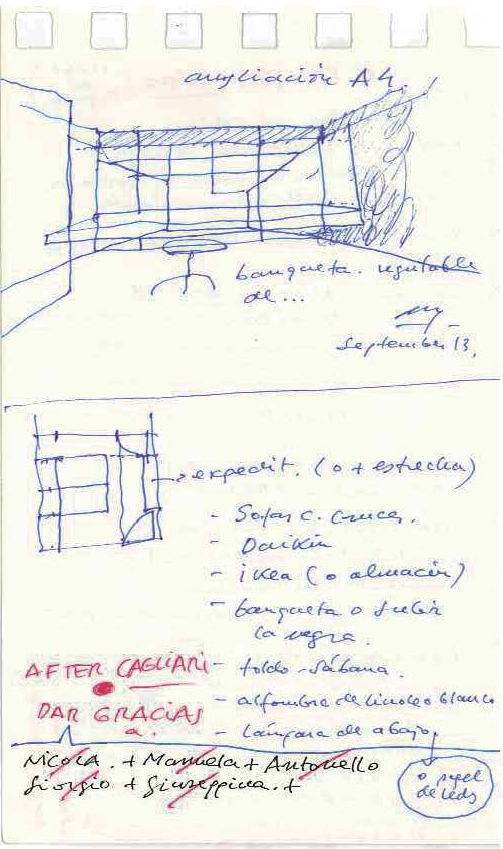 ampliación A4.
banqueta. regulable
de...
September 13,
→ expedit. (o + estrecha)
- Sofas C. Cruces.
- Daikin
- ikea (o almacén)
- banqueta o subir
la negra.
- toldo-sábana.
- alfombra de linoleo blanco
- lámpara de abajo,
o papel
de leds
AFTER CAGLIARI
DAR GRACIAS
a.
Nicola. + Manuela + Antonello
Giorgio + Giuseppina. +